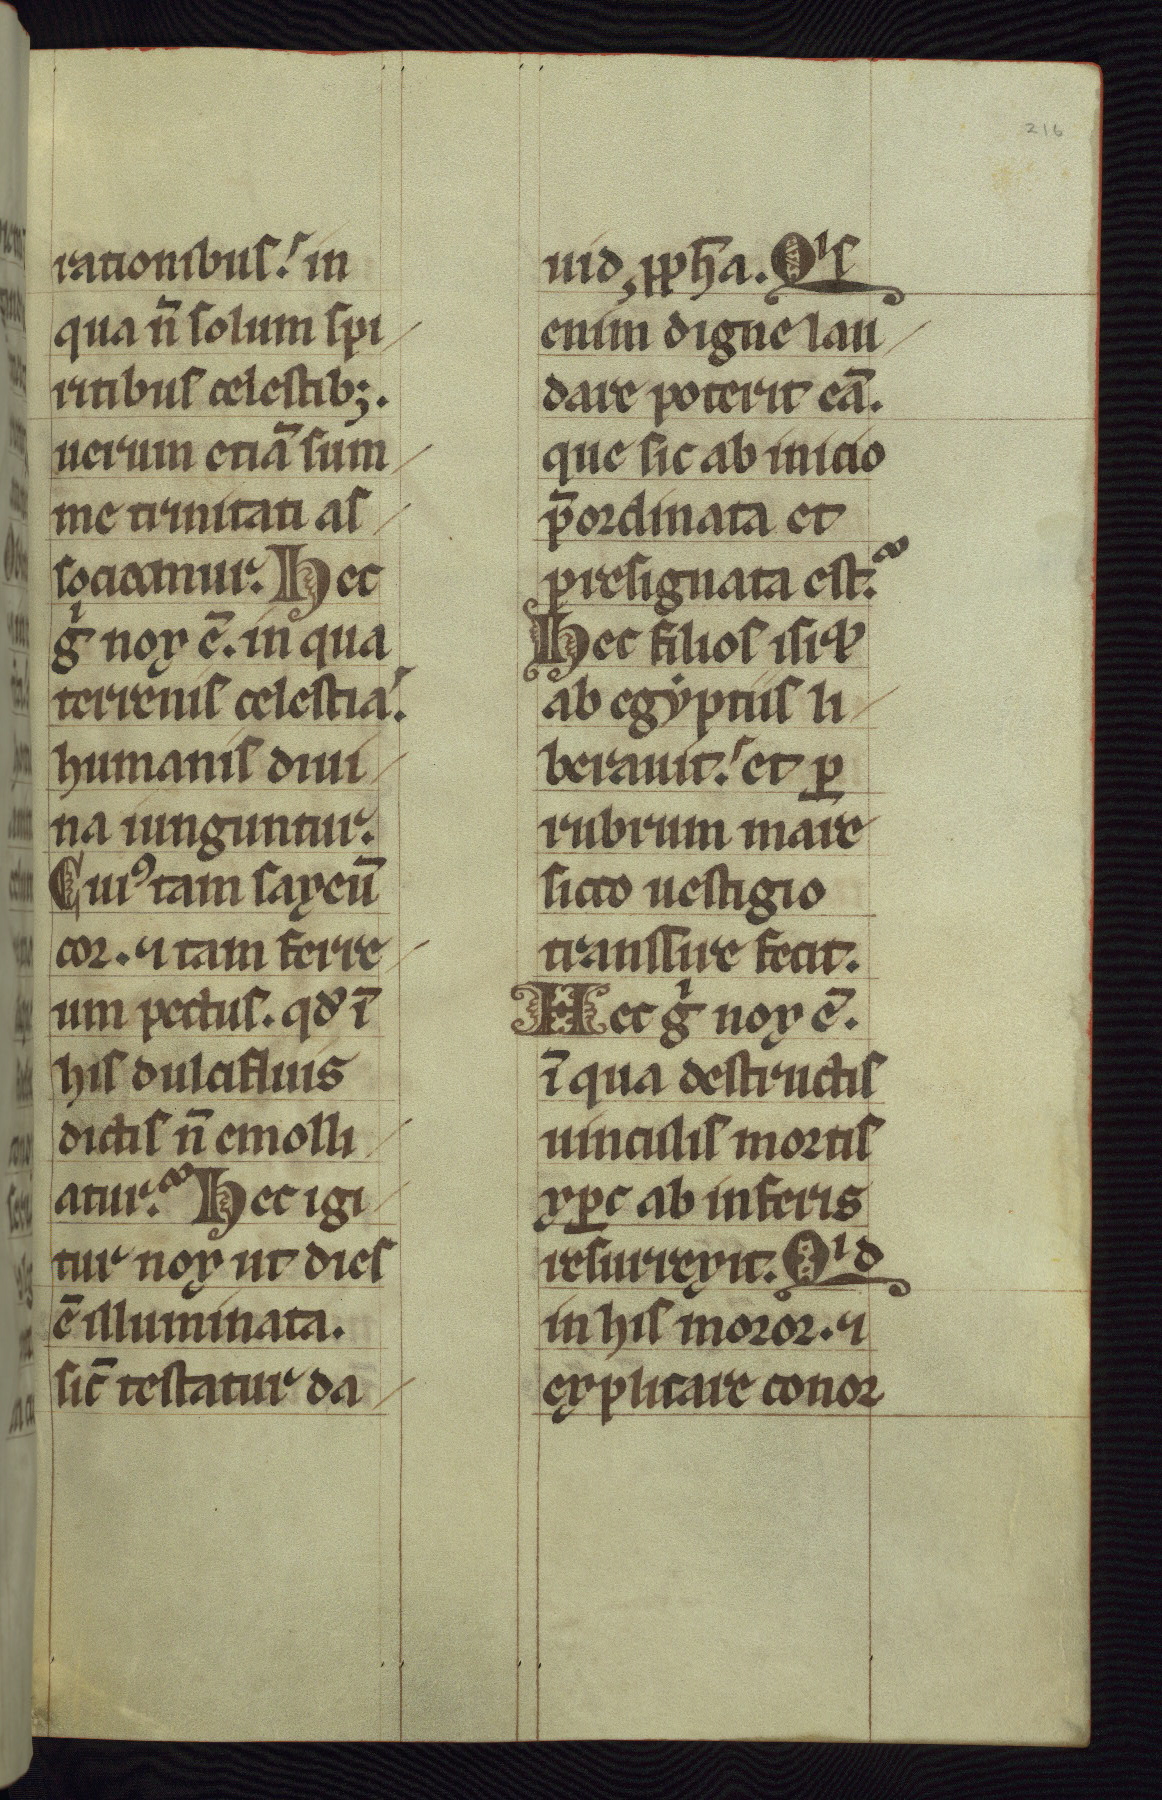 216
rationibus. in
qua n̄ solum spi
ritibus celestibꝫ.
uerum etiā sum
me trinitati as
sociamur. Hec
gͥ nox ē. in qua
terrenis celestia.
humanis diui
na iunguntur.
Cuiꝰ tam saxeū
cor. ⁊ tam ferre
um pectus. qđ ī
his dulcifluis
dictis n̄ emolli
atur. Hec igi
tur nox ut dies
ē illuminata.
sic̄ testatur da
uid, ꝓph̄a. Qͥs
enim digne lau
dare poterit eā.
que sic ab inicio
p̄ordinata et
presignata est.
Hec filios isrł
ab egẏptiis li
berauit. et ꝑ
rubrum mare
sicco uestigio
transsire fecit.
Hec gͥ nox ē.
ī qua destructis
uinculis mortis
xp̄c ab inferis
resurrexit. Qͥd
in his moror. ⁊
explicare conor